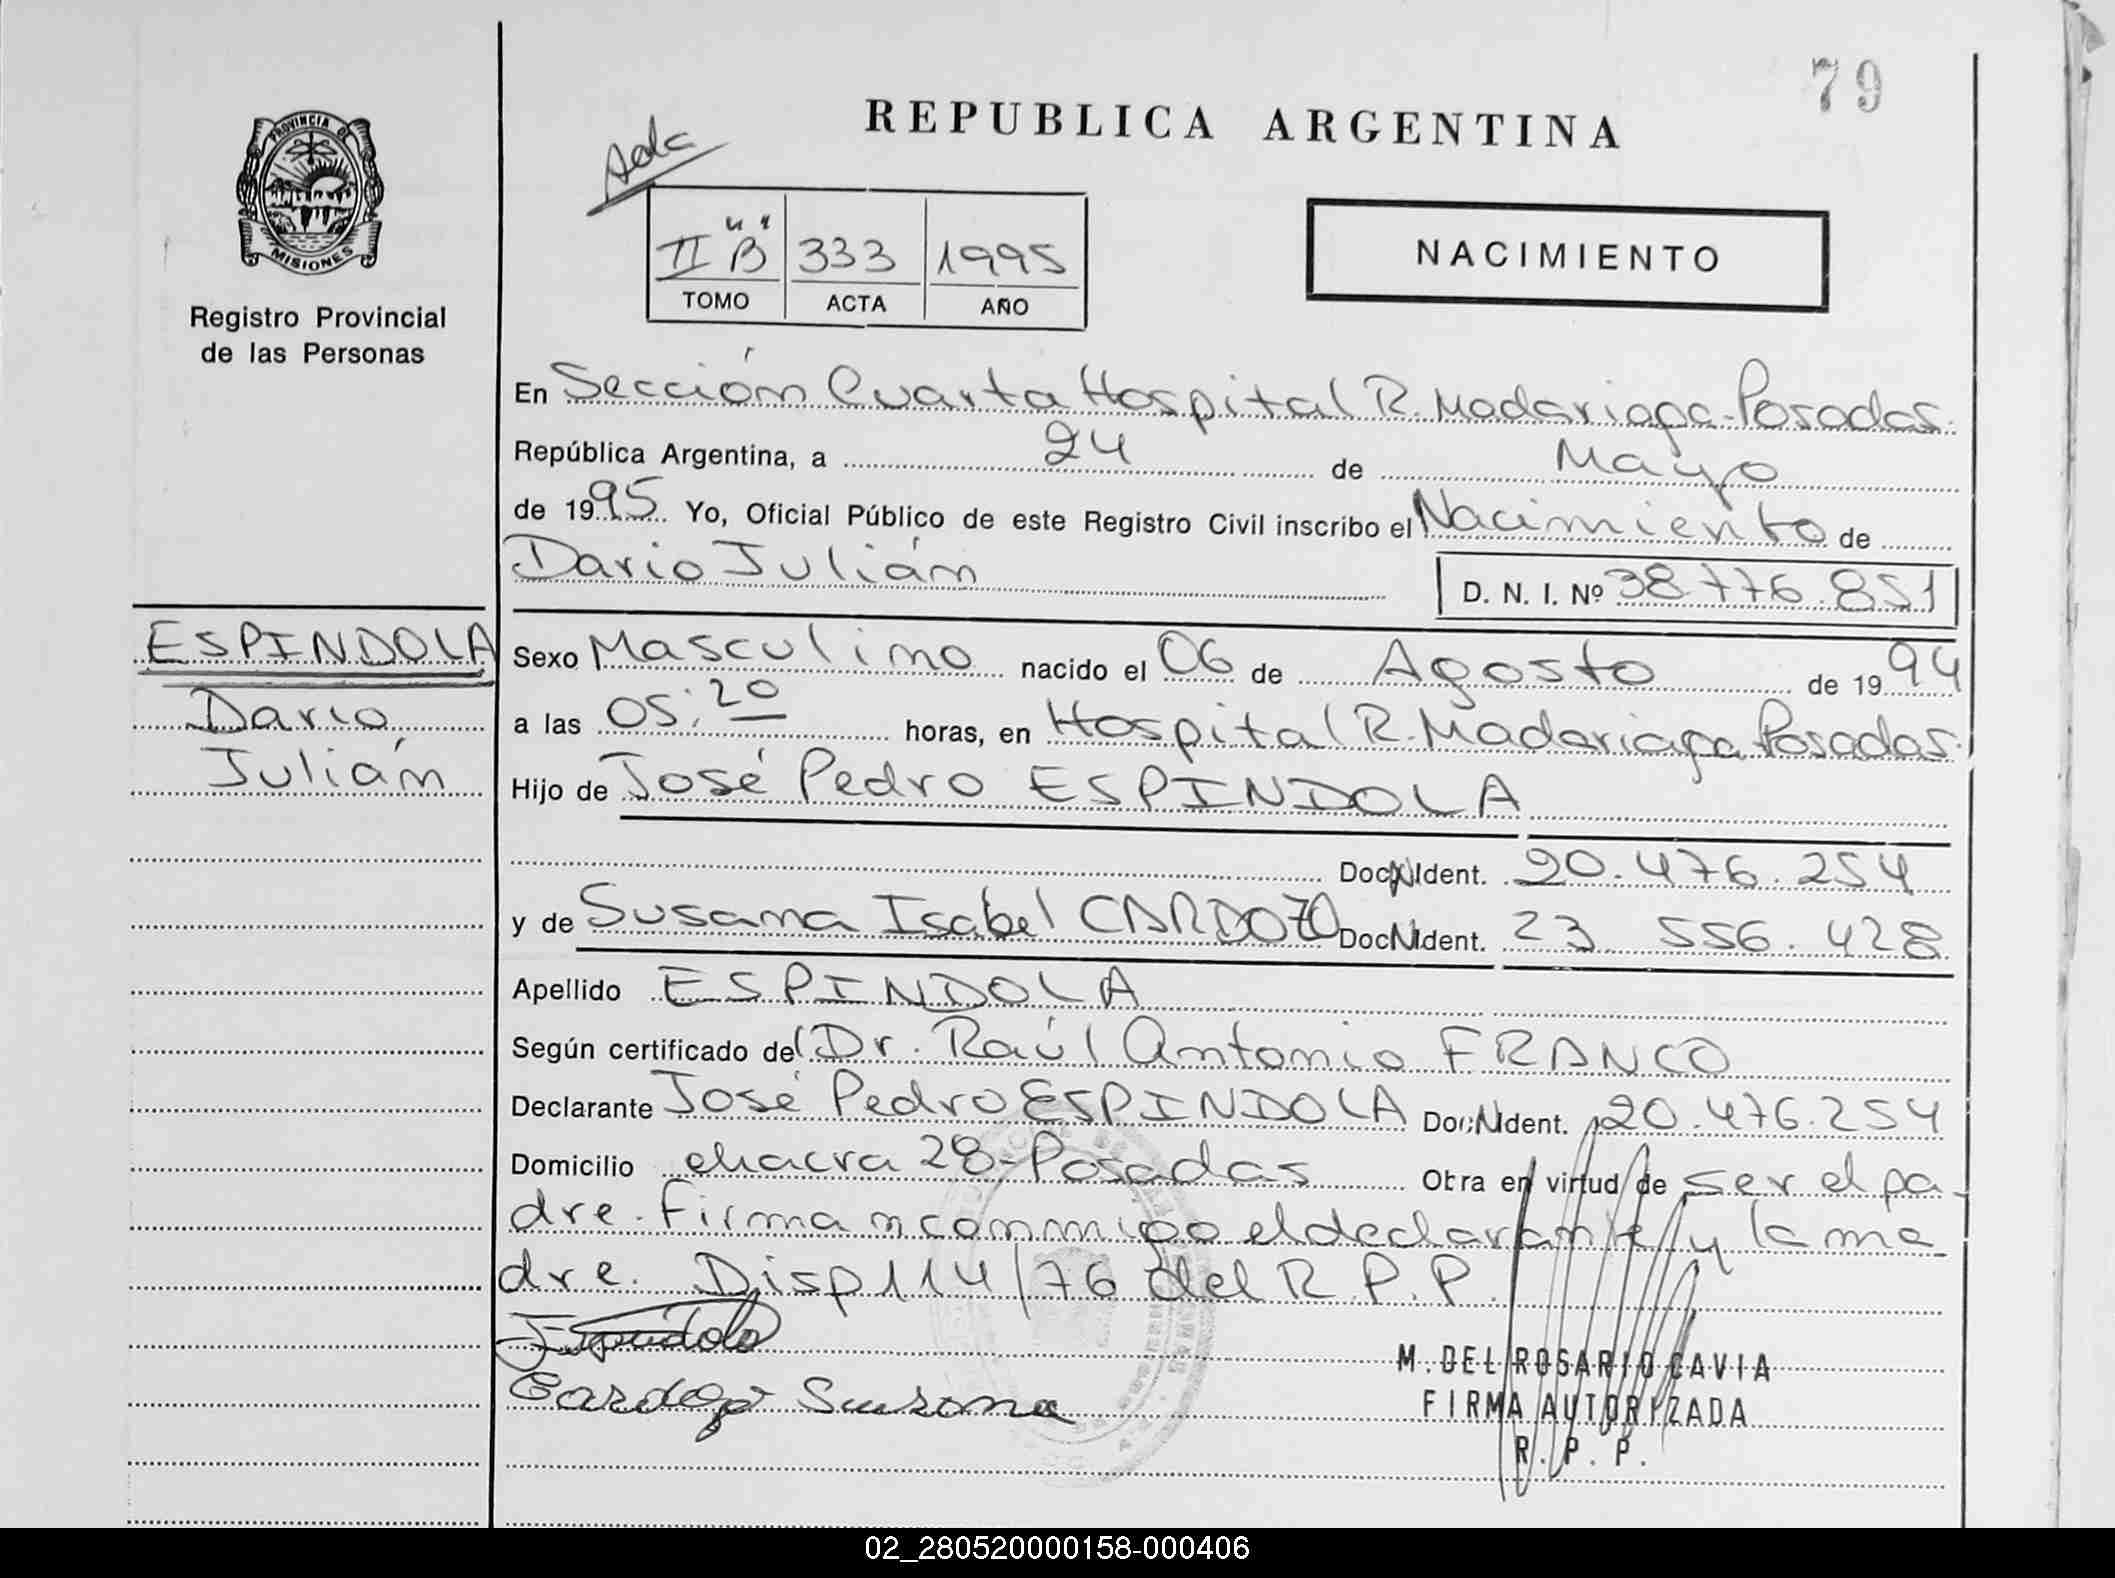 79
REPUBLICA ARGENTINA
PROVINCIA DE
MISIONES
Registro Provincial
de las Personas
II "B" 333 1995
TOMO ACTA AÑO
NACIMIENTO
En Sección Cuarta Hospital R. Madariaga-Posadas.
República Argentina, a 24 de Mayo
de 1995 Yo, Oficial Público de este Registro Civil inscribo el Nacimiento de
Dario Julián D. N. I. Nº 38.776.851
ESPINDOLA
Dario
Julián
Sexo Masculino nacido el 06 de Agosto de 1994
a las 05:20 horas, en Hospital R. Madariaga Posadas.
Hijo de José Pedro ESPINDOLA
Doc. N Ident. 20.476.254
y de Susana Isabel CARDOZO Doc. N Ident. 23 556.428
Apellido ESPINDOLA
Según certificado del Dr. Raúl Antonio FRANCO
Declarante José Pedro ESPINDOLA Doc. N Ident. 20.476.254
Domicilio chacra 28-Posadas Obra en virtud de ser el pa-
dre. Firman conmigo el declarante y la ma
dre. Disp 114/76 del R.P.P.
Espindola
Cardozo Susana
M. DEL ROSARIO CAVIA
FIRMA AUTORIZADA
R. P. P.
02_280520000158-000406